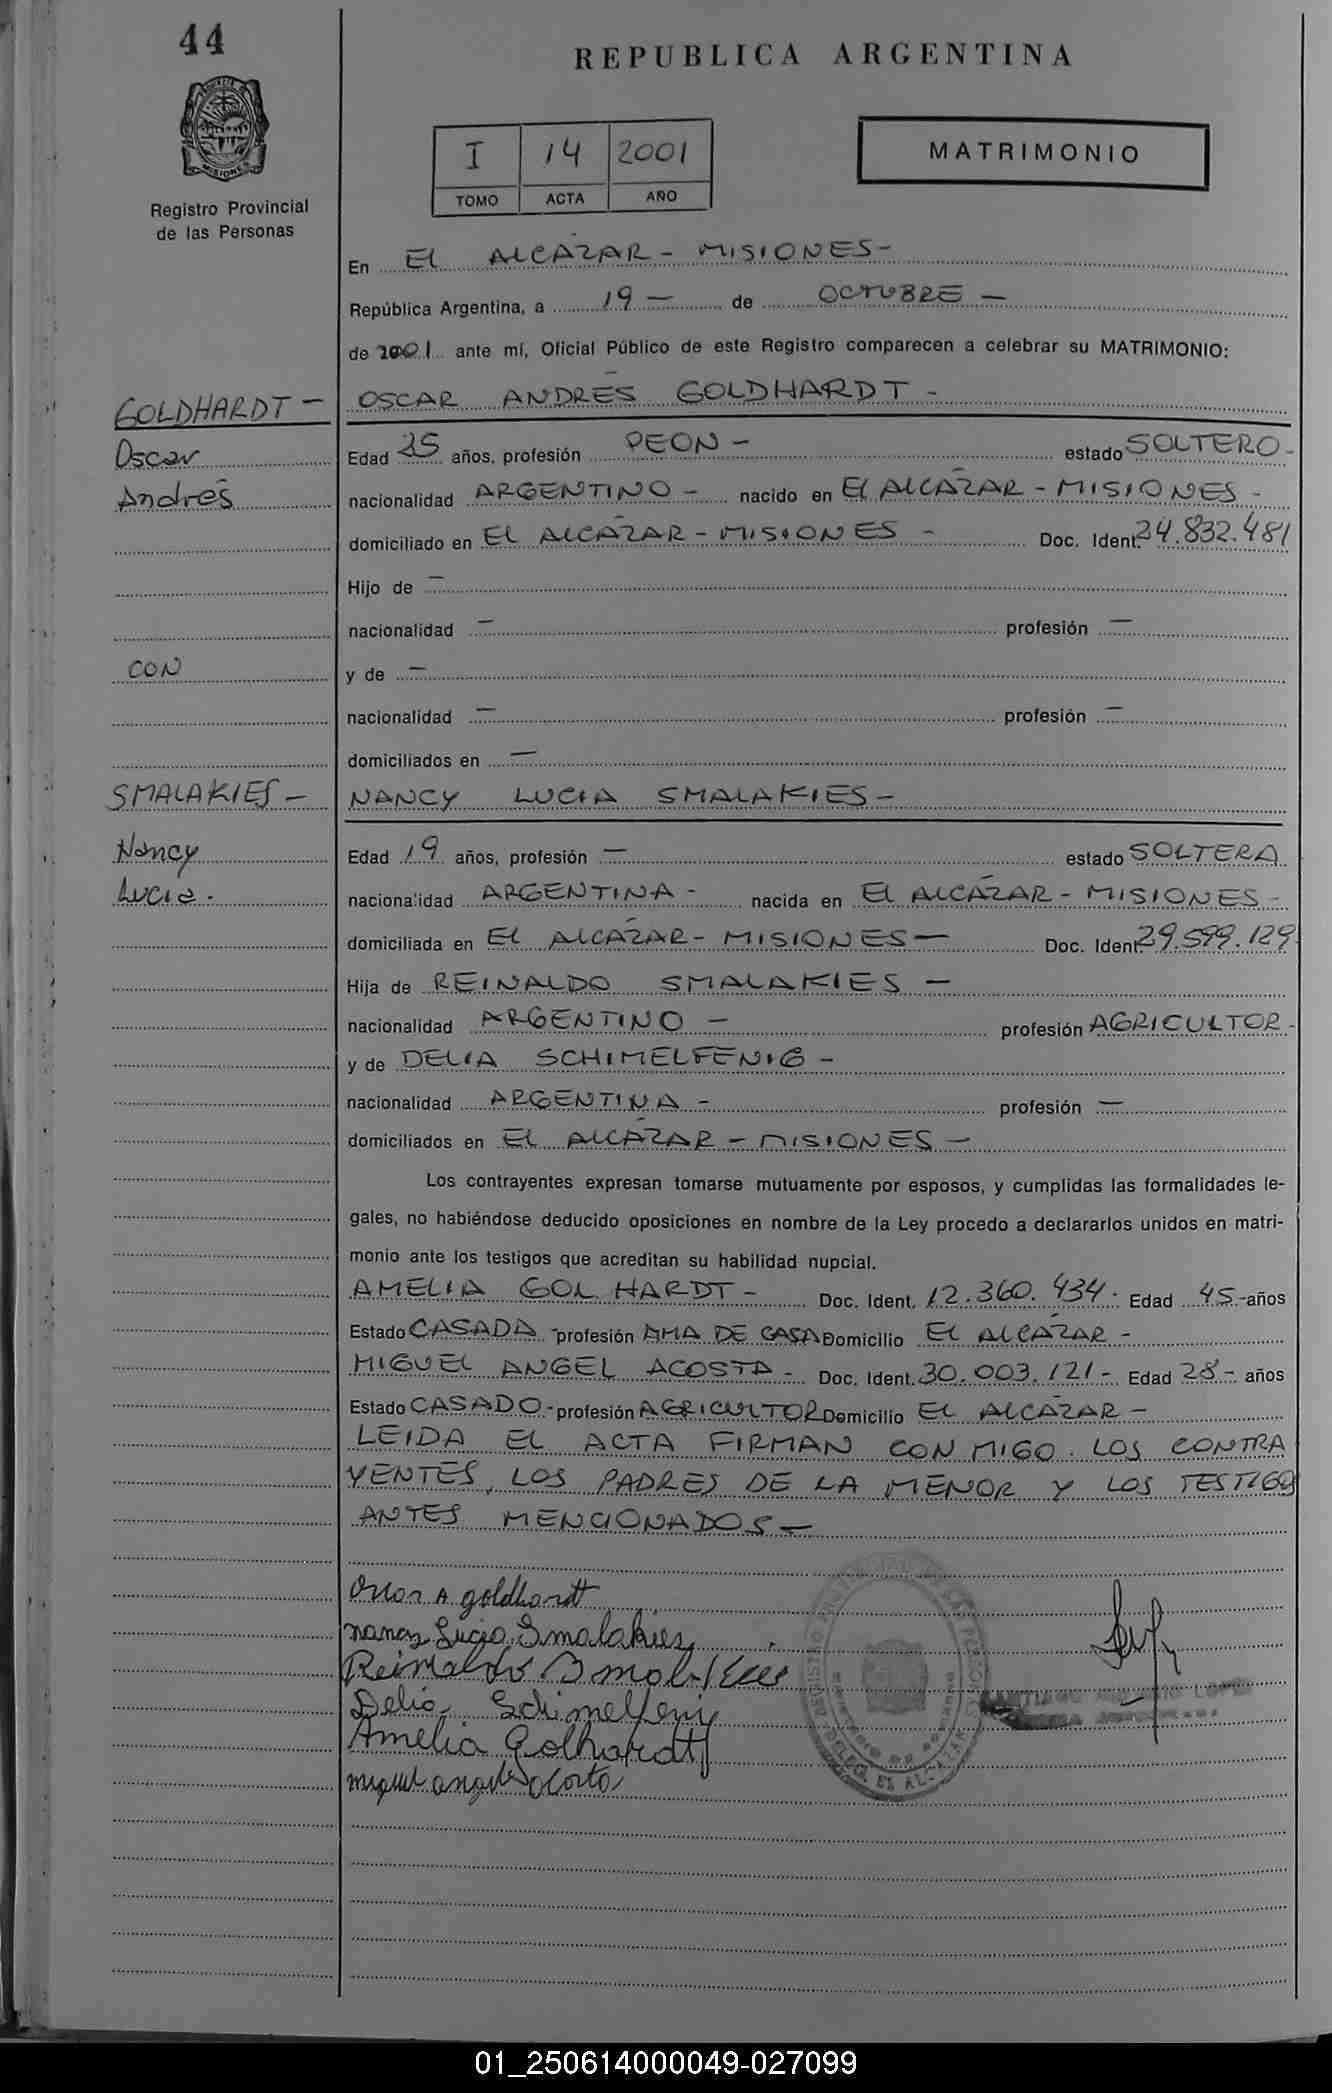 44
REPUBLICA ARGENTINA
MISIONES
Registro Provincial
de las Personas
I 14 2001
TOMO ACTA AÑO
MATRIMONIO
En EL ALCÁZAR - MISIONES-
República Argentina, a 19 — de OCTUBRE —
de 2001 ante mí, Oficial Público de este Registro comparecen a celebrar su MATRIMONIO:
GOLDHARDT - OSCAR ANDRÉS GOLDHARDT -
Oscar Edad 25 años, profesión PEON - estado SOLTERO -
Andrés nacionalidad ARGENTINO - nacido en El ALCÁZAR - MISIONES -
domiciliado en EL ALCÁZAR - MISIONES - Doc. Ident. 24.832.481
Hijo de —
nacionalidad — profesión —
CON y de —
nacionalidad — profesión —
domiciliados en —
SMALAKIES - NANCY LUCIA SMALAKIES -
Nancy Edad 19 años, profesión — estado SOLTERA
Lucia . nacionalidad ARGENTINA - nacida en El ALCÁZAR - MISIONES -
domiciliada en El ALCÁZAR - MISIONES — Doc. Ident. 29.599.129
Hija de REINALDO SMALAKIES —
nacionalidad ARGENTINO - profesión AGRICULTOR -
y de DELIA SCHIMELFENIG -
nacionalidad ARGENTINA - profesión —
domiciliados en EL ALCÁZAR - MISIONES -
Los contrayentes expresan tomarse mutuamente por esposos, y cumplidas las formalidades le-
gales, no habiéndose deducido oposiciones en nombre de la Ley procedo a declararlos unidos en matri-
monio ante los testigos que acreditan su habilidad nupcial.
AMELIA GOLHARDT - Doc. Ident. 12.360.434. Edad 45.- años
Estado CASADA - profesión AMA DE CASA Domicilio El ALCÁZAR -
MIGUEL ANGEL ACOSTA - Doc. Ident. 30.003.121 - Edad 28 - años
Estado CASADO - profesión AGRICULTOR Domicilio EL ALCÁZAR -
LEIDA EL ACTA FIRMAN CON MIGO LOS CONTRA
YENTES, LOS PADRES DE LA MENOR Y LOS TESTIGOS
ANTES MENCIONADOS -
Oscar A goldhardt
nancy Lucia Smalakies
Reinaldo Smalakies
Delia Schimelfenig
Amelia Golhardt
miguel angel Acosta
EL ALCAZAR
01_250614000049-027099